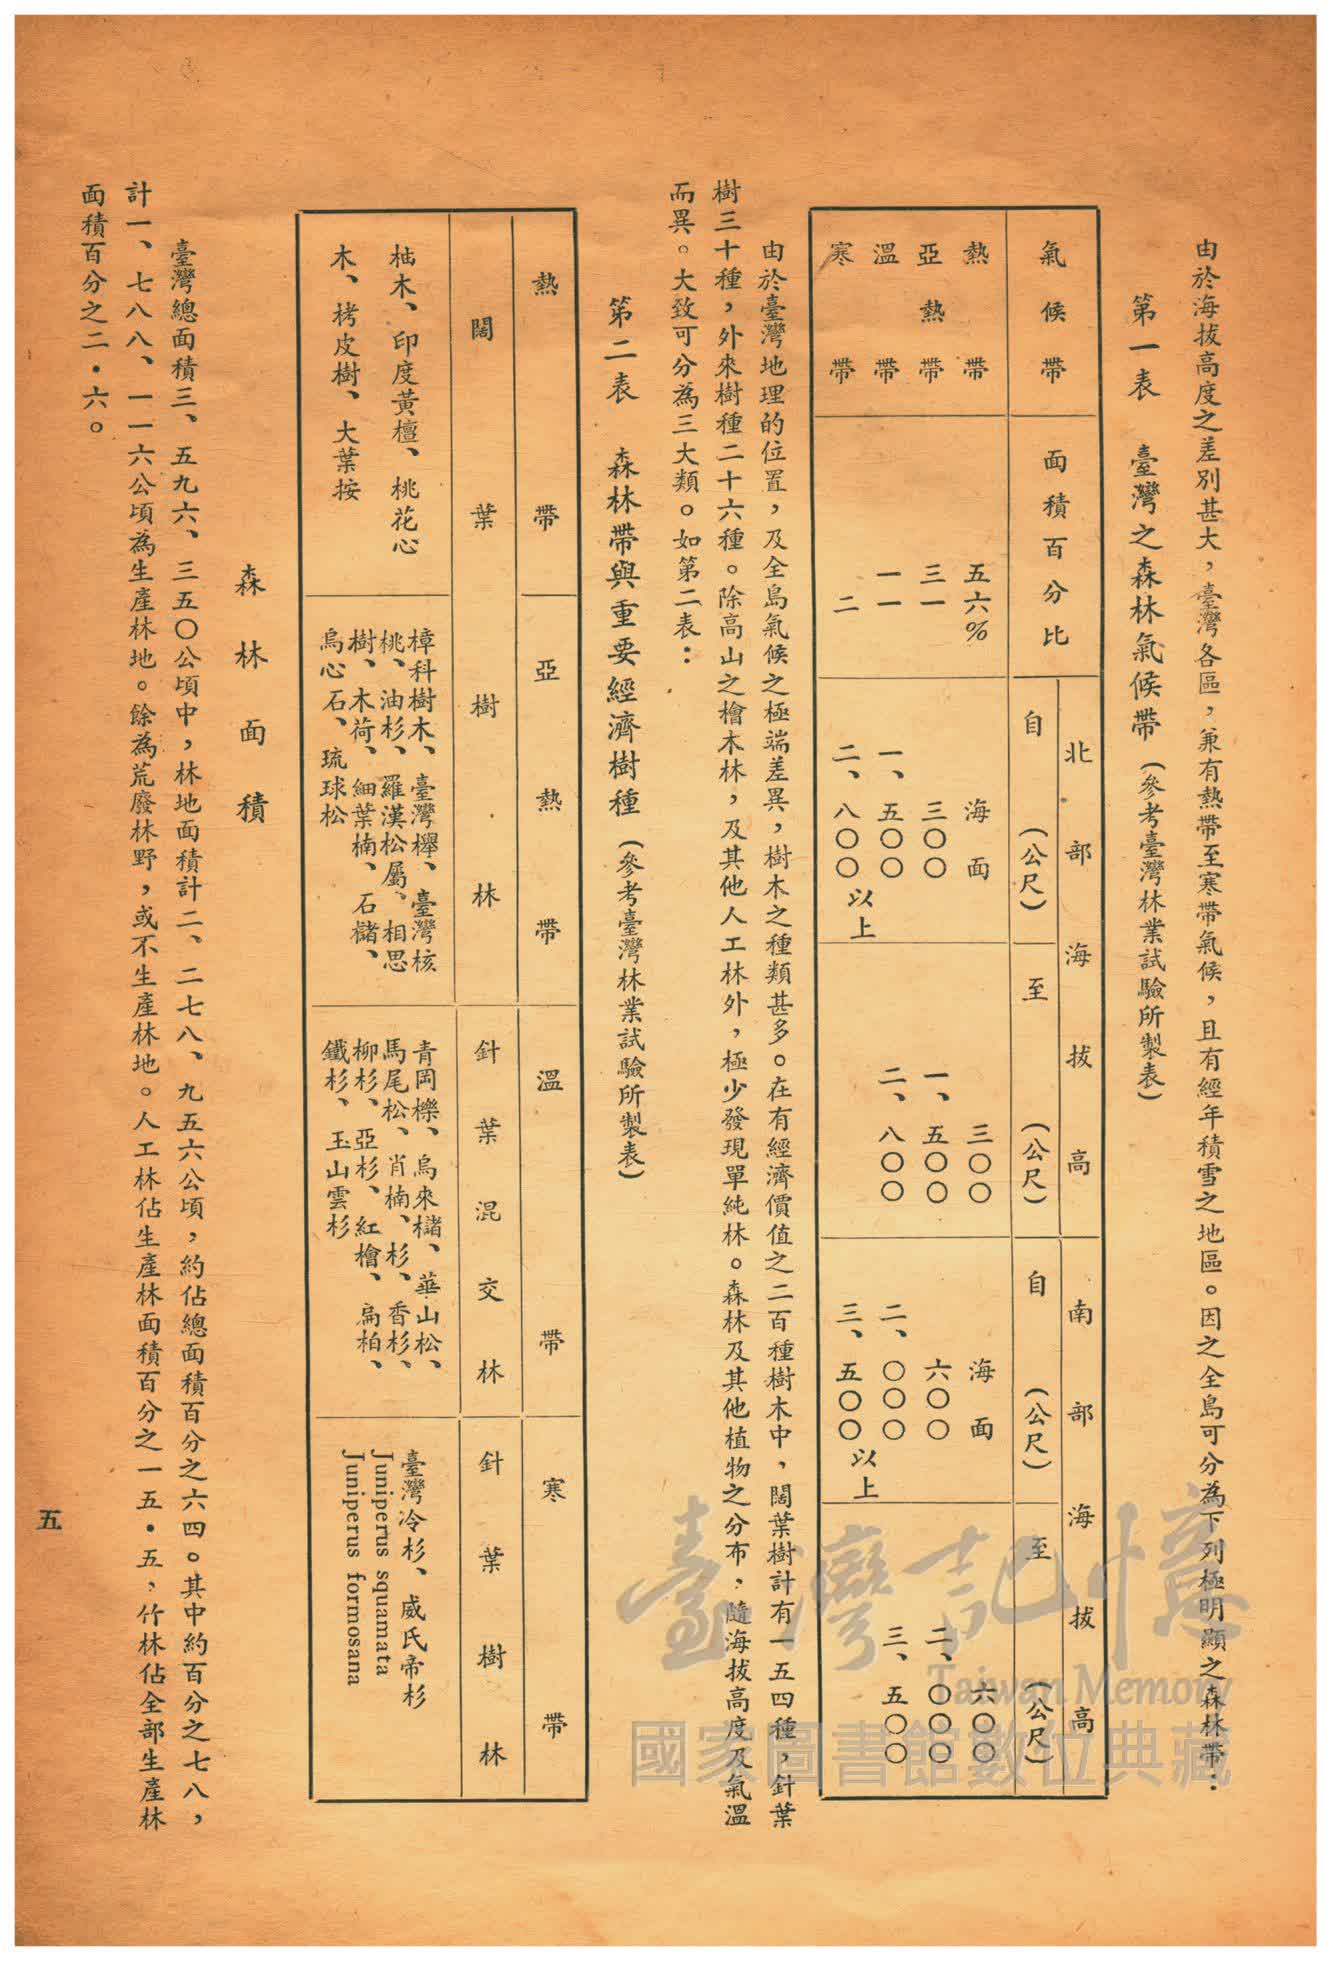 由於海拔高度之差別甚大，臺灣各區，兼有熱帶至寒帶氣候，且有經年積雪之地區。因之全島可分為下列極明顯之森林帶：
第一表　臺灣之森林氣候帶（參考臺灣林業試驗所製表）
氣候帶　面積百分比　北部海拔高　南部海拔高
自（公尺）　至（公尺）　自（公尺）　至（公尺）
熱帶　五六%　海面　三〇〇　海面　六〇〇
亞熱帶　三一　三〇〇　一、五〇〇　六〇〇　二、〇〇〇
溫帶　一一　一、五〇〇　二、八〇〇　二、〇〇〇　三、五〇〇
寒帶　二　二、八〇〇以上　三、五〇〇以上
由於臺灣地理的位置，及全島氣候之極端差異，樹木之種類甚多。在有經濟價值之二百種樹木中，闊葉樹計有一五四種，針葉
樹三十種，外來樹種二十六種。除高山之檜木林，及其他人工林外，極少發現單純林。森林及其他植物之分布，隨海拔高度及氣溫
而異。大致可分為三大類。如第二表：
第二表　森林帶與重要經濟樹種（參考臺灣林業試驗所製表）
熱帶　亞熱帶　溫帶　寒帶
闊葉樹林　針葉混交林　針葉樹林
柚木、印度黃檀、桃花心
木、栲皮樹、大葉按
樟科樹木、臺灣櫸、臺灣核
桃、油杉、羅漢松屬、相思
樹、木荷、細葉楠、石櫧、
烏心石、琉球松
青岡櫟、烏來櫧、華山松、
馬尾松、肖楠、杉、香杉、
柳杉、亞杉、紅檜、扁柏、
鐵杉、玉山雲杉
臺灣冷杉、威氏帝杉
Juniperus squamata
Juniperus formosana
森林面積
臺灣總面積三、五九六、三五〇公頃中，林地面積計二、二七八、九五六公頃，約佔總面積百分之六四。其中約百分之七八，
計一、七八八、一一六公頃為生產林地。餘為荒廢林野，或不生產林地。人工林佔生產林面積百分之一五．五，竹林佔全部生產林
面積百分之二．六。
五
臺灣記憶
Taiwan Memory
國家圖書館數位典藏